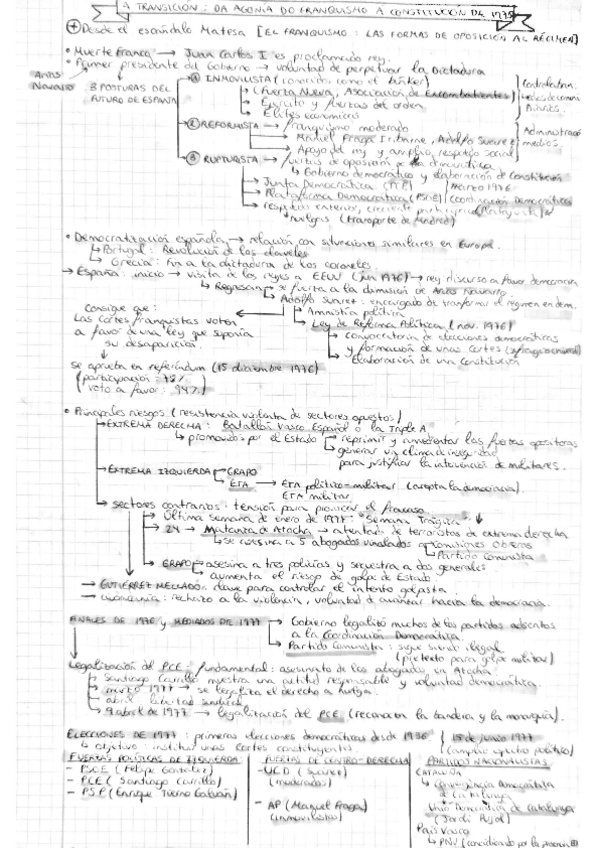 A TRANSICIÓN: DA AGONÍA DO FRANQUISMO A CONSTITUCIÓN DE 1978
Desde el escándalo Matesa [EL FRANQUISMO: LAS FORMAS DE OPOSICIÓN AL RÉGIMEN]
• Muerte Franco → Juan Carlos I es proclamado rey.
• Primer presidente del Gobierno → voluntad de perpetuar la Dictadura
Arias Navarro
3 POSTURAS DEL FUTURO DE ESPAÑA
① INMOVILISTA (conocidos como el búnker)
(Fuerza Nueva, Asociación de Excombatientes)
Ejército y fuerzas del orden
Élites económicas
② REFORMISTA → franquismo moderado
Manuel Fraga Iribarne, Adolfo Suárez
Apoyo del rey y amplio respaldo social
Administració
medios.
③ RUPTURISTA → fuerzas de oposición democrática
Gobierno democrático y elaboración de Constitución
Junta Democrática (PCE)
Plataforma Democrática (PSOE)
Marzo 1976
Coordinación Democrática
respaldo exterior, creciente
huelgas (transporte de Madrid)
• Democratización española → relación con situaciones similares en Europa.
Portugal: Revolución de los claveles
Grecia: fin a la dictadura de los coroneles
→ España: inicio → visita de los reyes a EEUU (jun 1976) → rey discurso a favor democracia
Regresan → se fuerza a la dimisión de Arias Navarro
Adolfo Suárez: encargado de transformar el régimen en dem.
Amnistía política
Ley de Reforma Política (nov. 1976)
convocatoria de elecciones democráticas
y formación de unas Cortes (sufragio universal)
Elaboración de una Constitución
Consigue que:
Las Cortes franquistas voten
a favor de una ley que suponía
su desaparición
se aprueba en referéndum (15 diciembre 1976)
(participación: 78%
voto a favor: 94%)
• Principales riesgos (resistencia violenta de sectores opuestos)
→ EXTREMA DERECHA: Batallón Vasco Español o la Triple A
promovidos por el Estado
reprimir y amedrentar las fuerzas opositoras
generar un clima de inseguridad
para justificar la intervención de militares.
→ EXTREMA IZQUIERDA
GRAPO
ETA → ETA político-militar (acepta la democracia).
ETA militar
→ sectores contrarios: tensión para provocar el fracaso
Última semana de enero de 1977: "Semana Trágica"
24 → Matanza de Atocha → atentado de terroristas de extrema derecha
se asesina a 5 abogados vinculados a
Comisiones Obreras
Partido Comunista
GRAPO
asesina a tres policías y secuestra a dos generales
aumenta el riesgo de golpe de Estado
→ GUTIÉRREZ MELLADO: clave para controlar el intento golpista.
→ ciudadanía: rechazo a la violencia, voluntad de avanzar hacia la democracia.
FINALES DE 1976 y MEDIADOS DE 1977
Gobierno legalizó muchos de los partidos adscritos
a la Coordinación Democrática
Partido Comunista: sigue siendo ilegal
(pretexto para golpe militar)
Legalización del PCE: fundamental: asesinato de los abogados en Atocha
Santiago Carrillo muestra una actitud responsable y voluntad democrática.
marzo 1977 → se legaliza el derecho a huelga.
abril: libertad sindical
9 abril de 1977 → legalización del PCE (reconocen la bandera y la monarquía).
ELECCIONES DE 1977: primeras elecciones democráticas desde 1936
objetivo: instituir unas Cortes constituyentes.
15 de junio 1977
(amplio espectro político)
FUERZAS POLÍTICAS DE IZQUIERDA
- PSOE (Felipe González)
- PCE (Santiago Carrillo)
- PSP (Enrique Tierno Galván)
FUERZAS DE CENTRO-DERECHA
- UCD (Suárez)
(moderados)
- AP (Manuel Fraga)
(inmovilistas)
PARTIDOS NACIONALISTAS
CATALUÑA
Convergència Democràtica
de Catalunya
Unió Democràtica de Catalunya
(Jordi Pujol)
País Vasco
PNV